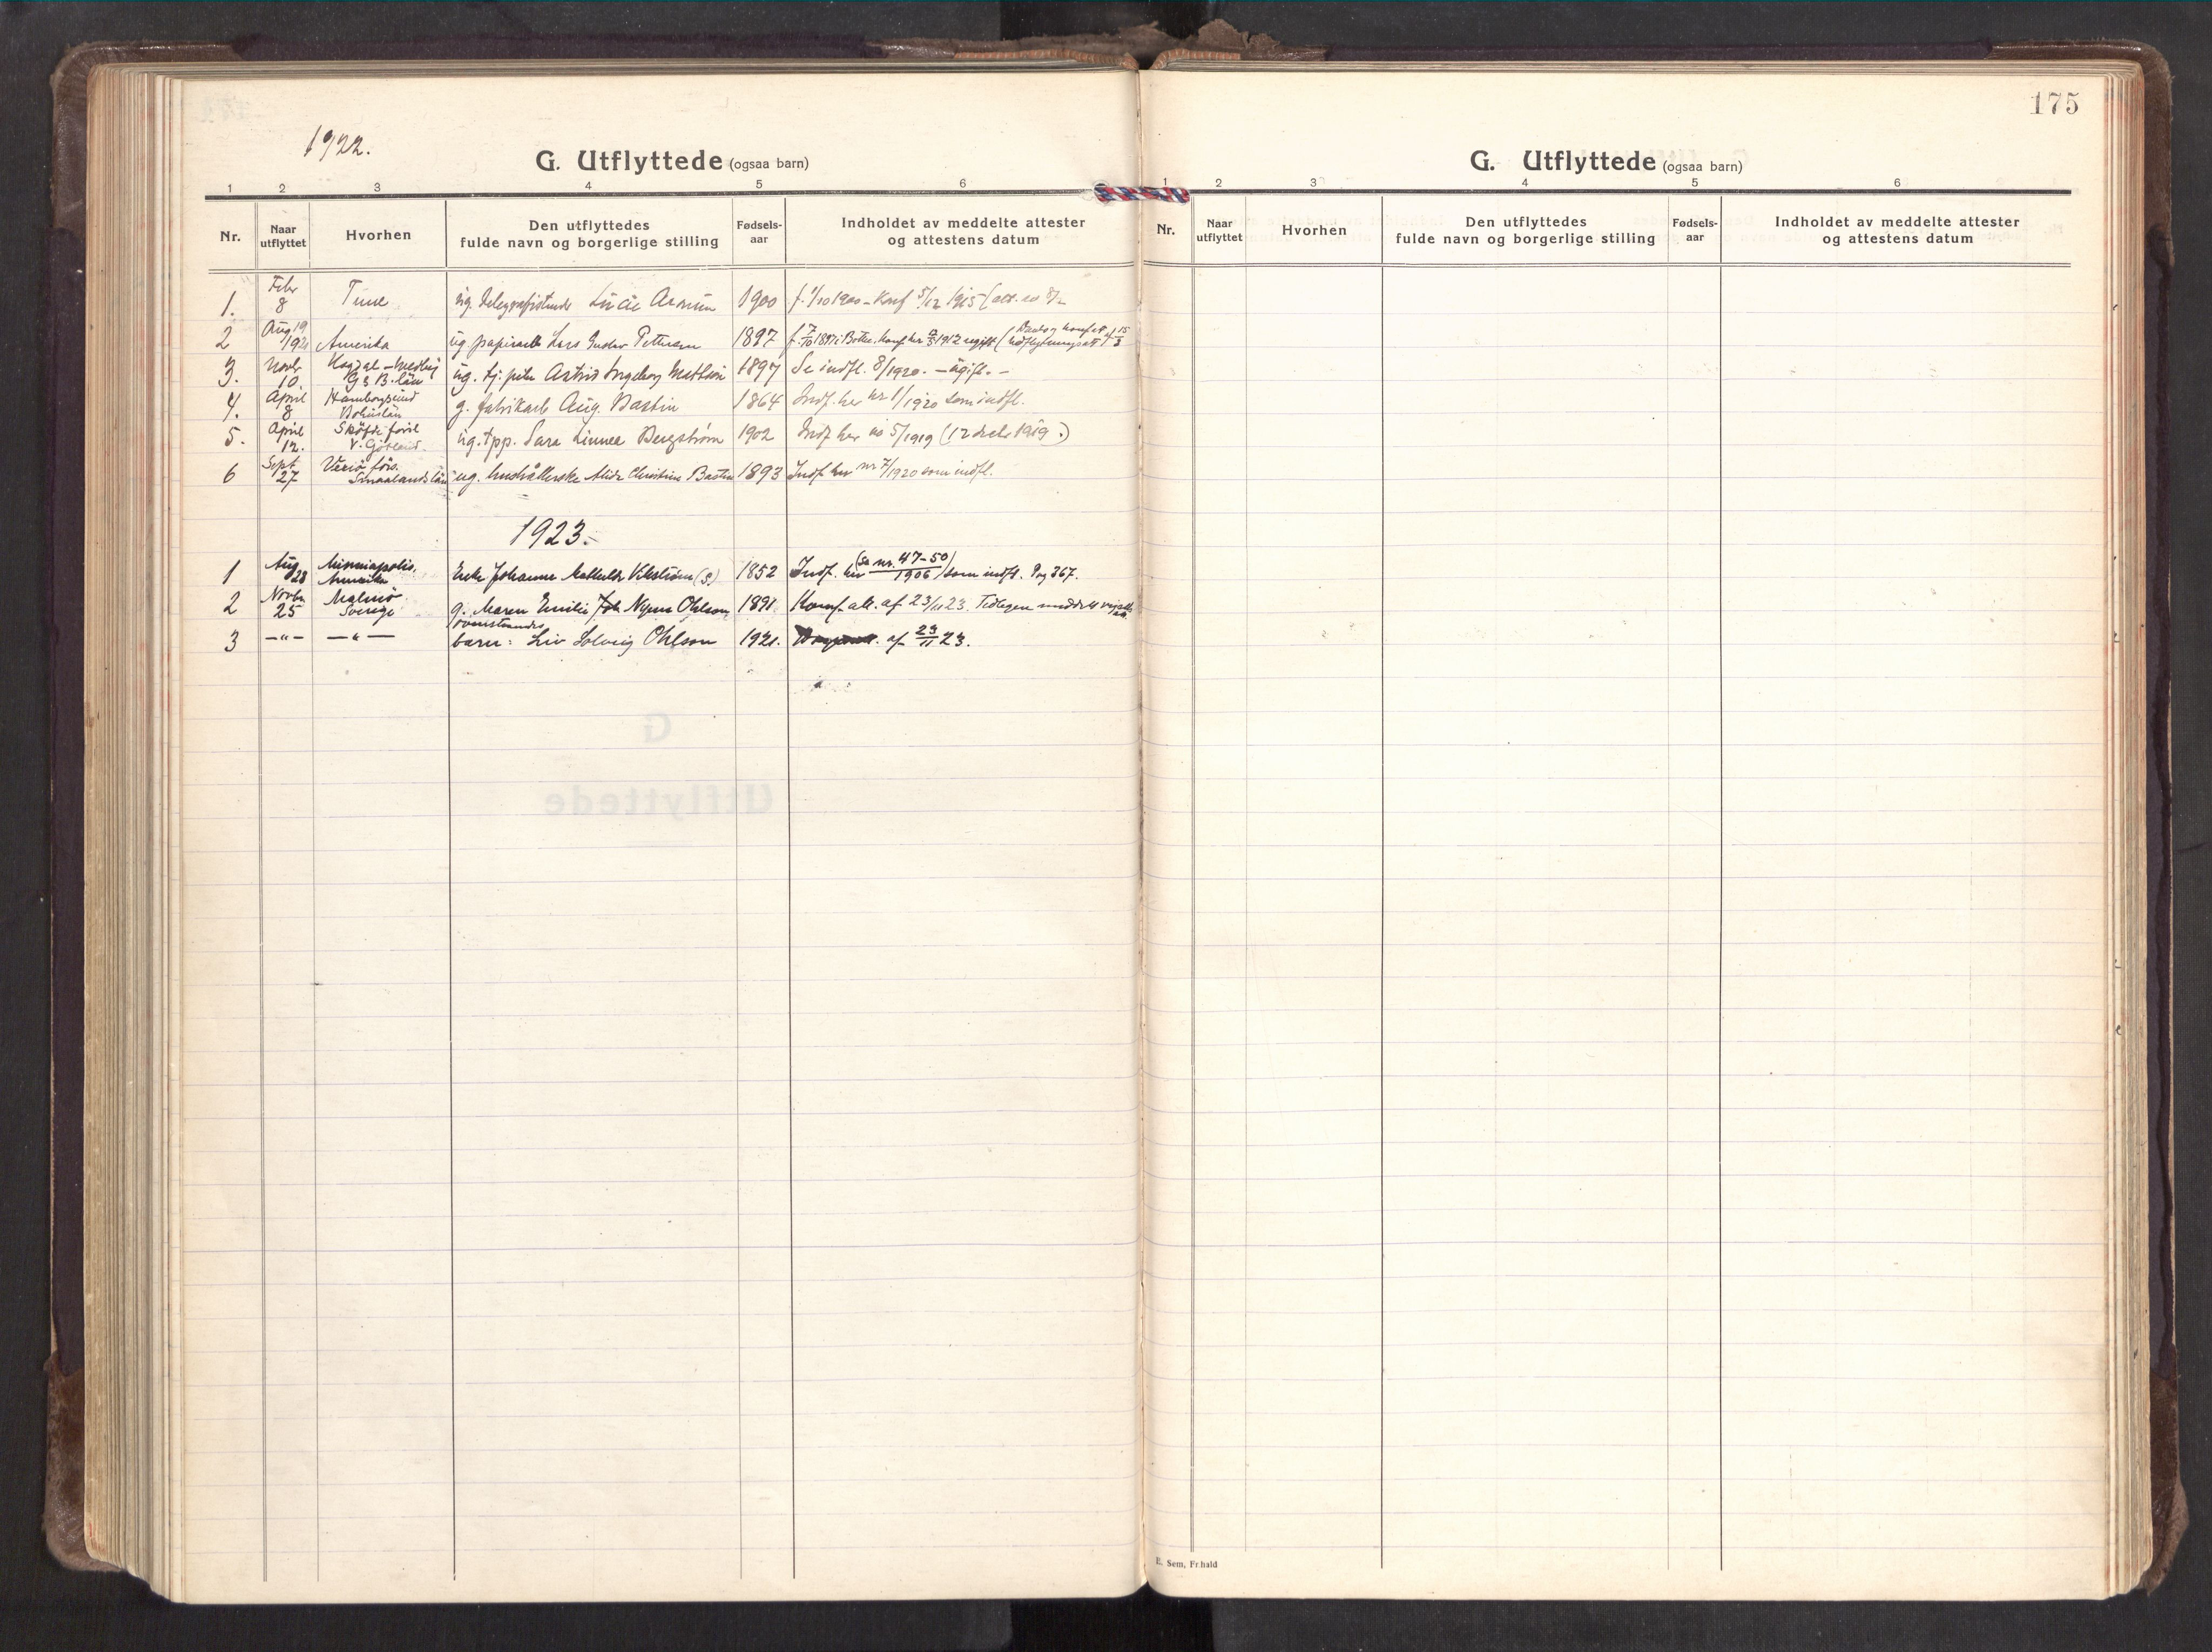 1922.
G. Utflyttede (ogsaa barn)
1 2 3 4 5 6
Nr. Naar utflyttet Hvorhen Den utflyttedes fulde navn og borgerlige stilling Fødsels-aar Indholdet av meddelte attester og attestens datum
1. Febr 8 Tune ug. telegrafistinde Lucie 1900 f. 1/10 1900 – Konf 5/12 1915
2 Aug 19 1921 Amerika ug. papirarb Lars Gustav Pettersen 1897 1912 ugift
3. Novbr 10. ug. tj. pike Astrid Ingeborg 1897 Se indfl. 8/1920. – ugift. –
4. April 8 Hamborgsund Bohuslän g. fabrikarb Aug. Bastin 1864 Indf. her nr 1/1920 som indfl.
5. April 12. V. Götland. ug. tpp. Sara Linnea Bergström 1902 Indf her no 5/1919
6 Sept 27 Smaalandslän ug. Christine Bastin 1893 Indf. her nr 7/1920 som indfl.
1923.
1 Aug 28 Minniapolis. Amerika Enke Johanne Mathilde (S.) 1852 Indf. her (se nr. 47-50/1906) som indfl. Pag 367.
2 Novbr 25 Malmö. Sverige g. Maren Emilie Ohlson 1891 Konf. att. af 23/11 23. Tidligere meddelt
3 –"– –"– ovenstaaendes barn: Liv Solveig Ohlson 1921. af 23/11 23.
175
G. Utflyttede (ogsaa barn)
1 2 3 4 5 6
Nr. Naar utflyttet Hvorhen Den utflyttedes fulde navn og borgerlige stilling Fødsels-aar Indholdet av meddelte attester og attestens datum
E. Sem, Fr.hald